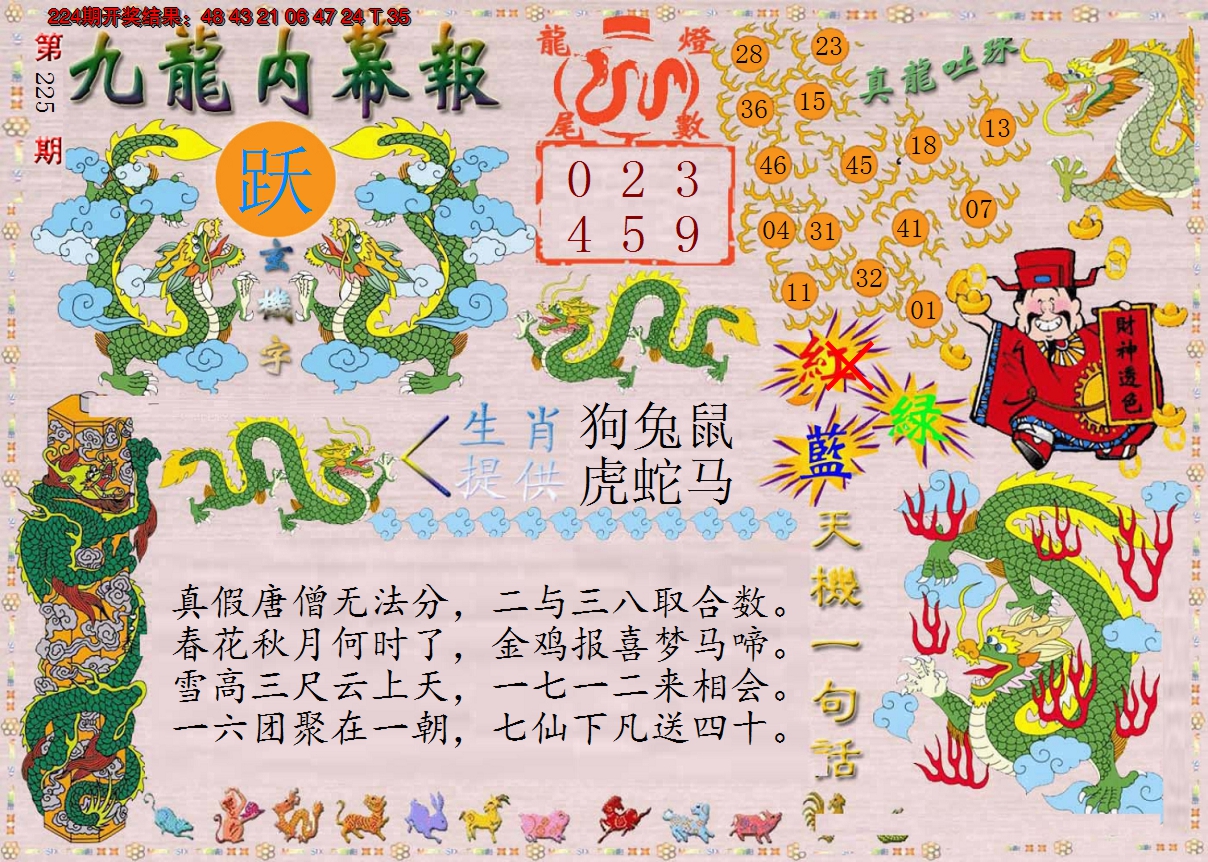 224期开奖结果：48 43 21 06 47 24 T 35
第225期
九龍内幕報
跃
玄機字
龍燈尾數
0 2 3
4 5 9
真龍吐珠
28 23
36 15
18 13
46 45
07
04 31 41
32
11
01
財神透色
紅
綠
藍
生肖 狗兔鼠
提供 虎蛇马
天機一句话
真假唐僧无法分，二与三八取合数。
春花秋月何时了，金鸡报喜梦马啼。
雪高三尺云上天，一七一二来相会。
一六团聚在一朝，七仙下凡送四十。